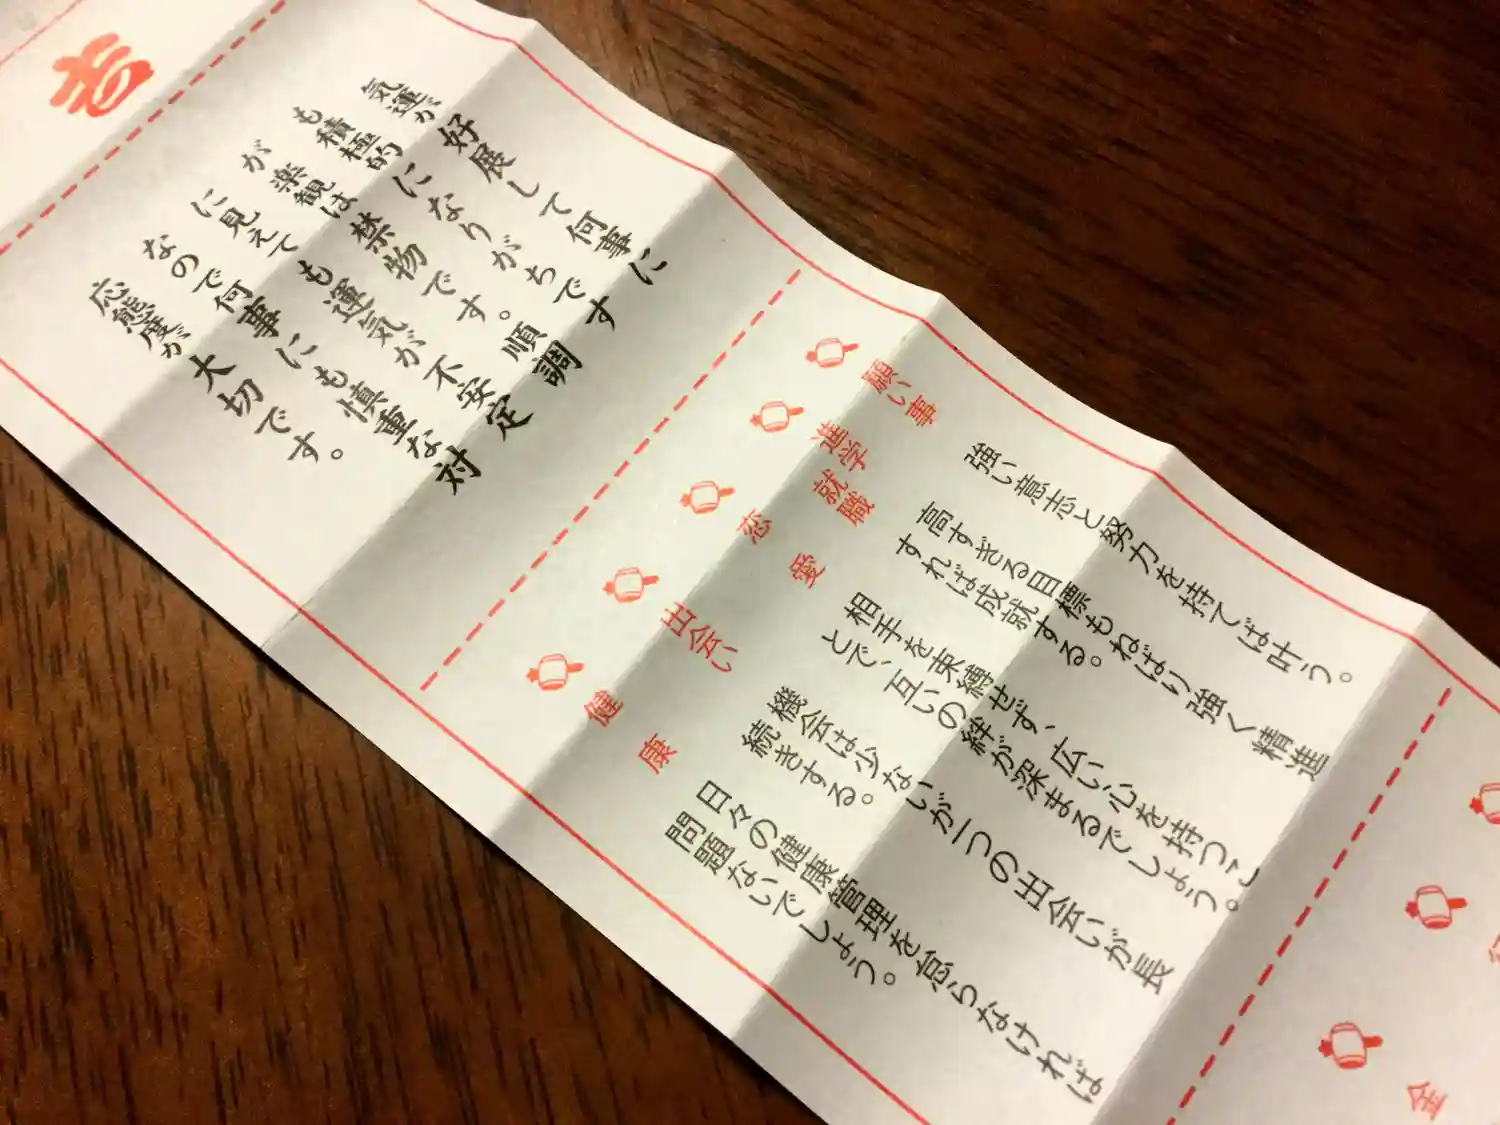 吉
気運が好展して何事に
も積極的になりがちです
が楽観は禁物です。順調
に見えても運気が不安定
なので何事にも慎重な対
応態度が大切です。
願い事
強い意志と努力を持てば叶う。
進学就職
高すぎる目標もねばり強く精進
すれば成就する。
恋愛
相手を束縛せず、広い心を持つこ
とで、互いの絆が深まるでしょう。
出会い
機会は少ないが一つの出会いが長
続きする。
健康
日々の健康管理を怠らなければ
問題ないでしょう。
金